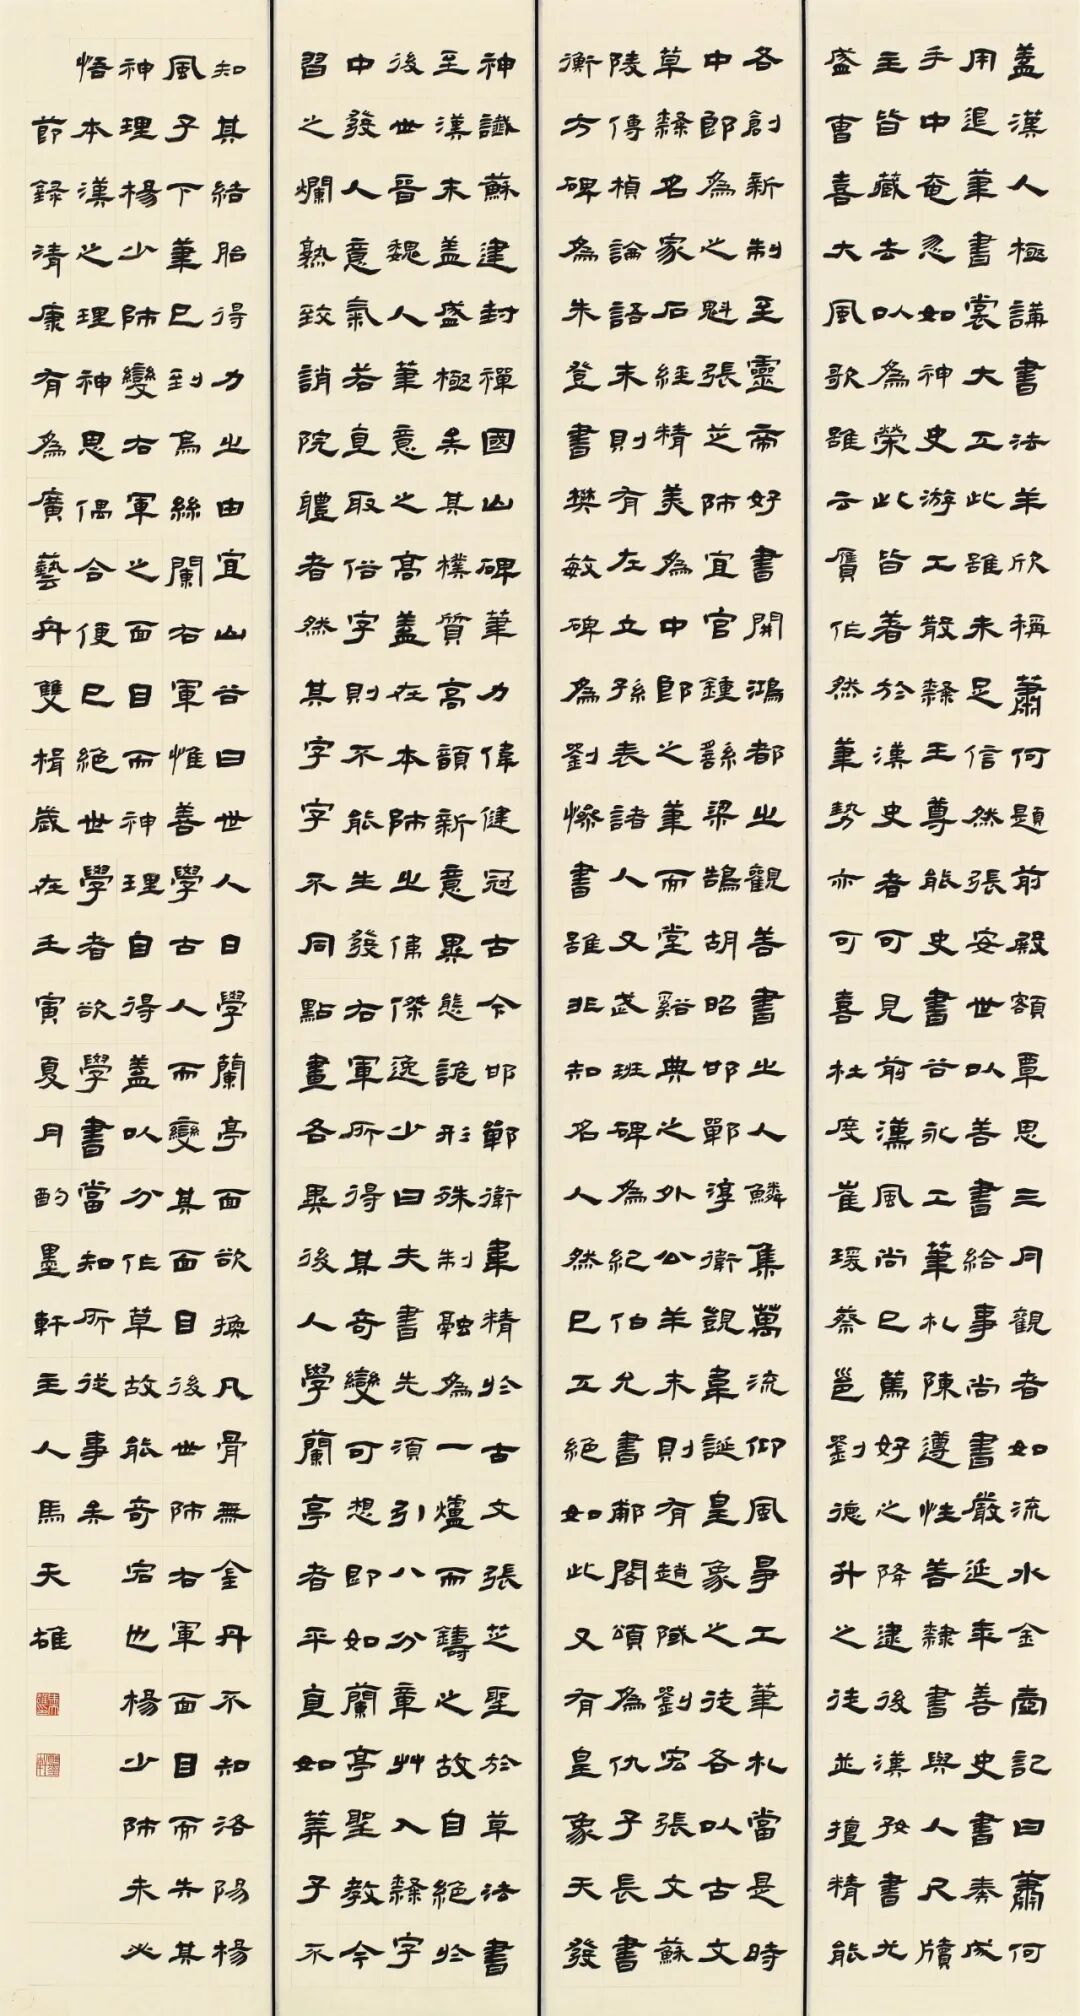 蓋漢人極講書法羊欣稱蕭何題前殿額覃思三月觀者如流水金壺記曰蕭何
用退筆書裳大工此雖未足信然張安世以善書給事尚書嚴延年善史書奏成
手中奄忽如神史游工散隸王尊能史書谷永工筆札陳遵性善隸書與人尺牘
主皆藏去以為榮此皆著於漢史者可見前漢風尚已篤好之降逮後漢好書尤
盛曹喜大風歌雖云贗作然筆勢亦可喜杜度崔瑗蔡邕劉德升之徒並擅精能
各創新制至靈帝好書開鴻都之觀善書之人鱗集萬流仰風爭工筆札當是時
中郎為之魁張芝師宜官鍾繇梁鵠胡昭邯鄲淳衛覬韋誕皇象之徒各以古文
草隸名家石經精美為中郎之筆而堂谿典之外公羊末則有趙陚劉宏張文蘇
陵傳楨論語末則有左立孫表諸人又武班碑為紀伯允書郙閣頌為仇子長書
衡方碑為朱登書樊敏碑為劉懆書雖非知名人然已工絕如此又有皇象天發
神讖蘇建封禪國山碑筆力偉健冠古今邯鄲衛韋精於古文張芝聖於草法書
至漢末蓋盛極矣其樸質高韻新意異態詭形殊制融為一爐而鑄之故自絕於
後世晉魏人筆意之高蓋在本師之偉傑逸少曰夫書先須引八分章艸入隸字
中發人意氣若直取俗字則不能生發右軍所得其奇變可想即如蘭亭聖教今
習之爛熟致誚院體者然其字字不同點畫各異後人學蘭亭者平直如算子不
知其結胎得力之由宜山谷曰世人日學蘭亭面欲換凡骨無金丹不知洛陽楊
風子下筆已到烏絲闌右軍惟善學古人而變其面目後世師右軍面目而失其
神理楊少師變右軍之面目而神理自得蓋以分作草故能奇宕也楊少師未必
悟本漢之理神思偶合便已絕世學者欲學書當知所從事矣
節錄清康有為廣藝舟雙楫歲在壬寅夏月酌墨軒主人馬天雄